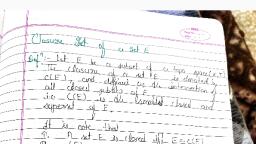 Closure Set of a set E
Def :- Let E be a subset of a topo space (X,T)
The closure of a set E is denoted by
C(E), and defined as the intersection of
all closed subsets of E
i.e C(E) is the smallest closed
superset of E.
It is note that
set E is closed iff E = C(E)